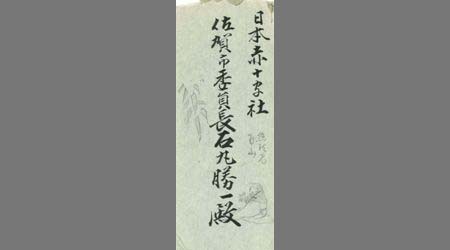 日本赤十字社
佐賀市委員長石丸勝一殿